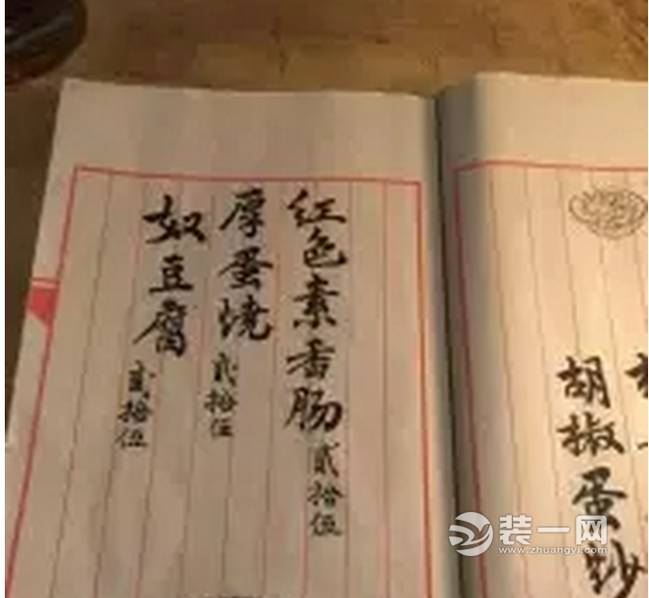 胡椒蛋炒
红色素香肠 貳拾伍
厚蛋烧 贰拾伍
奴豆腐 贰拾伍
装一网
www.zhuangyi.com